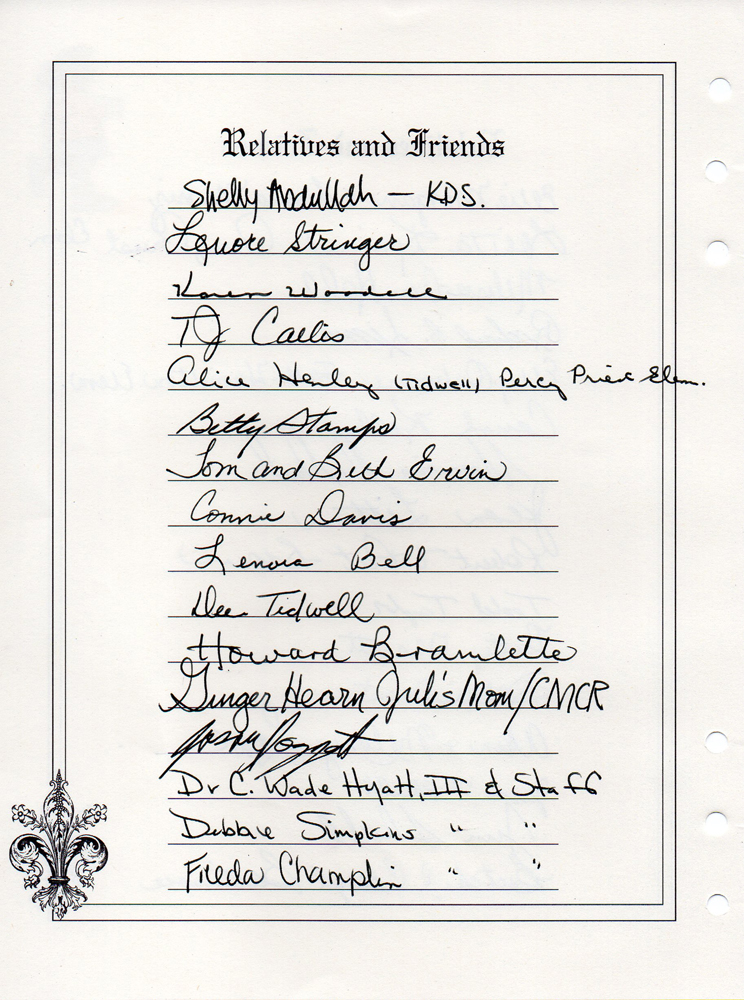 Relatives and Friends
Shelly Abdullah — KDS.
Lenore Stringer
Karen Woodell
TJ Callis
Alice Henley (Tidwell) Percy Priest Elem.
Betty Stamps
Tom and Beth Ervin
Connie Davis
Lenora Bell
Dee Tidwell
Howard Bramlette
Ginger Hearn Juli's Mom/CMCR
Dr C. Wade Hyatt, III & Staff
Debbie Simpkins " "
Freda Champlin " "